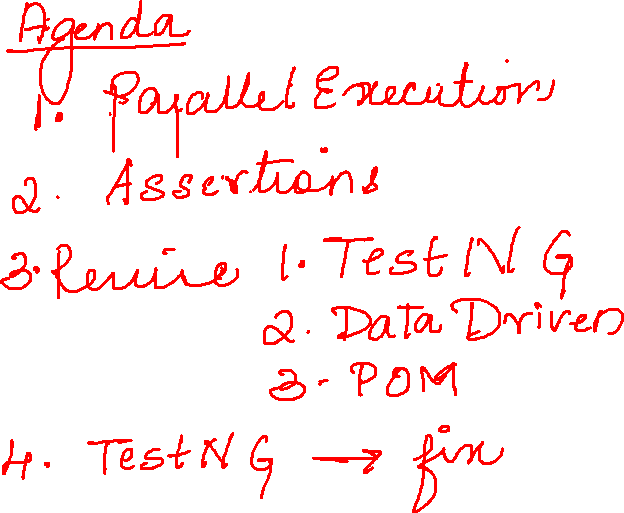 Agenda
1. Parallel Execution
2. Assertions
3. Revise 1. TestNG
2. Data Driven
3. POM
4. TestNG → fix